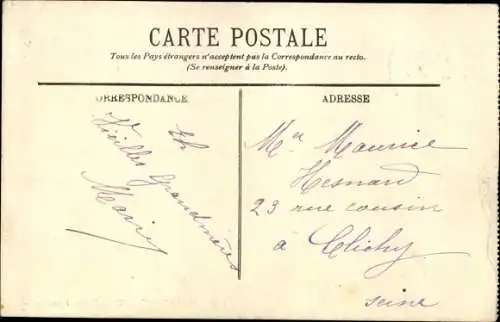 CARTE POSTALE
Tous les Pays étrangers n'acceptent pas la Correspondance au recto.
(Se renseigner à la Poste).
ORRESPONDANCE
ADRESSE
Vieilles Grandmères
Mr Maurice
Hesnard
23 rue cousin
à Clichy
Seine